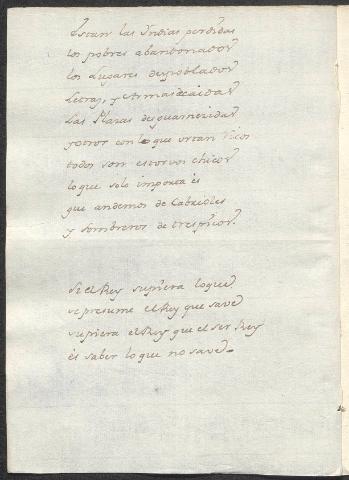 Estan las Yndias perdidas
los pobres abandonados
los Lugares despoblados
Letras, y Armas caidas
Las Plazas desguarnezidas
y otros con lo que urtan Ricos
todos son estorvos chicos
lo que solo importa es
que andemos de Cabrioles
y sombreros de tres picos.
Si el Rey supiera loque
se presume el Rey que save
supiera el Rey que el ser Rey
es saber lo que no save